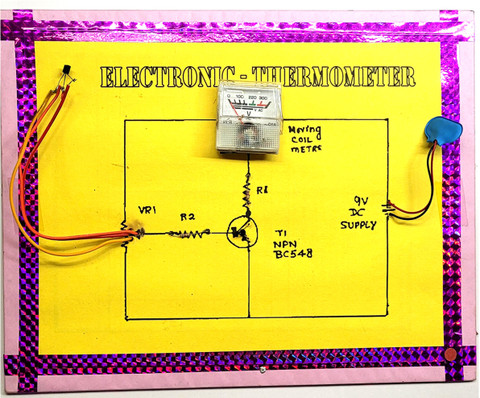 ELECTRONIC - THERMOMETER
0 100 220 300
V
MOVING
COIL
METRE
R1
VR1
R2
9V
DC
SUPPLY
T1
NPN
BC548